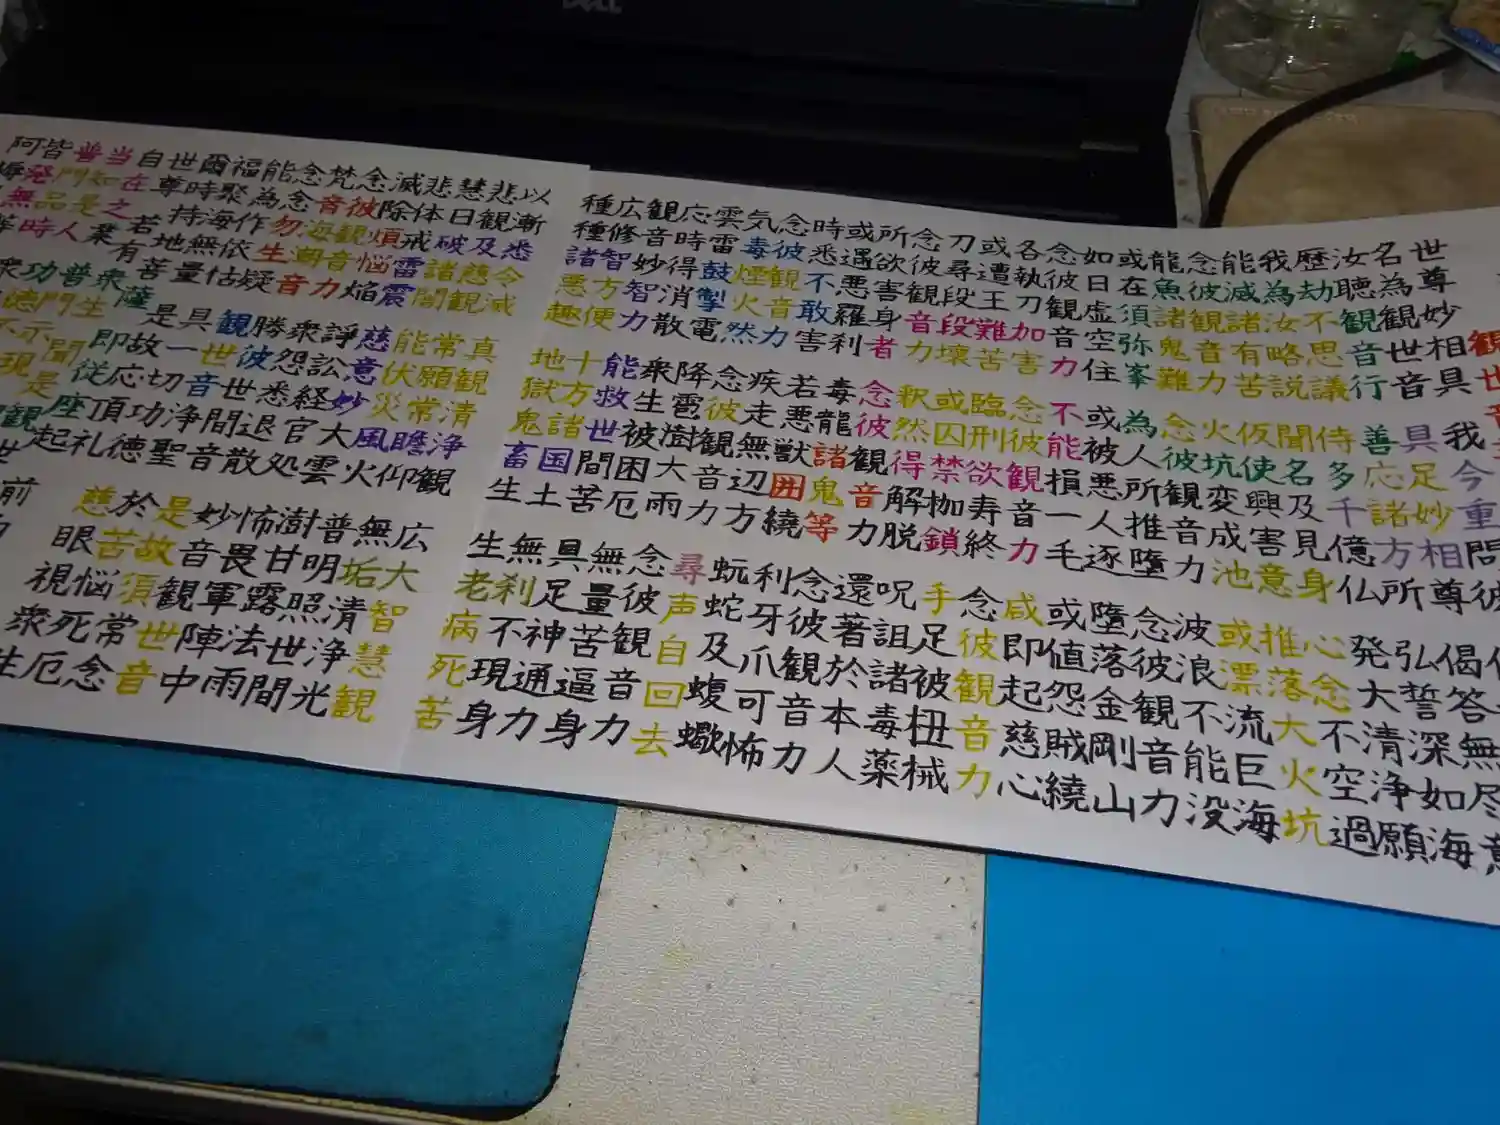 世尊妙相具 我今重問彼
名為観世音 具足妙相尊 偈答無尽意
汝聴観音行 善応諸方所 弘誓深如海
歴劫不思議 侍多千億仏 発大清浄願
我為汝略説 聞名及見身 心念不空過
能滅諸有苦 仮使興害意 推落大火坑
念彼観音力 火坑変成池 或漂流巨海
龍魚諸鬼難 念彼観音力 波浪不能没
或在須弥峯 為人所推墮 念彼観音力
如日虚空住 或被悪人逐 墮落金剛山
念彼観音力 不能損一毛 或値怨賊繞
各執刀加害 念彼観音力 咸即起慈心
或遭王難苦 臨刑欲寿終 念彼観音力
刀尋段段壊 或囚禁枷鎖 手足被杻械
念彼観音力 釈然得解脱 呪詛諸毒薬
所欲害身者 念彼観音力 還著於本人
或遇悪羅利 毒龍諸鬼等 念彼観音力
時悉不敢害 若悪獣囲繞 利牙爪可怖
念彼観音力 疾走無辺方 蚖蛇及蝮蠍
気毒煙火然 念彼観音力 尋声自回去
雲雷鼓掣電 降雹澍大雨 念彼観音力
応時得消散 衆生被困厄 無量苦逼身
観音妙智力 能救世間苦 具足神通力
広修智方便 十方諸国土 無刹不現身
種種諸悪趣 地獄鬼畜生 生老病死苦
以漸悉令滅 真観清浄観 広大智慧観
悲観及慈観 常願常瞻仰 無垢清浄光
慧日破諸闇 能伏災風火 普明照世間
悲体戒雷震 慈意妙大雲 澍甘露法雨
滅除煩悩焔 諍訟経官処 怖畏軍陣中
念彼観音力 衆怨悉退散 妙音観世音
梵音海潮音 勝彼世間音 是故須常念
念念勿生疑 観世音浄聖 於苦悩死厄
能為作依怙 具一切功徳 慈眼視衆生
福聚海無量 是故応頂礼
爾時持地菩薩 即従座起 前
世尊若有衆生 聞是観世
自在之業 普門示現
当如是人功徳
普門品時衆
皆発無
阿